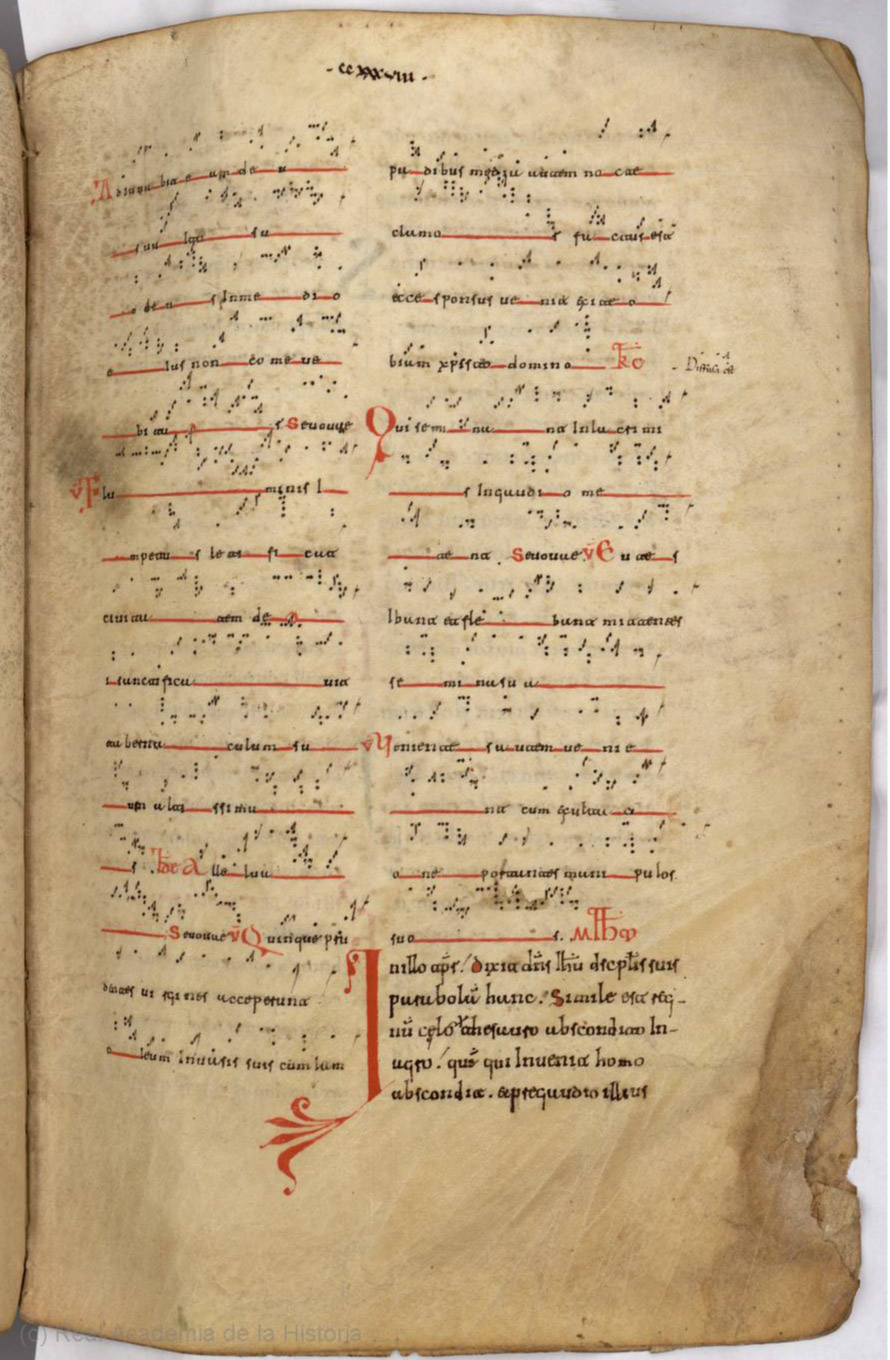 ·ccxxxviii·
Adiuua bit e am de u
s uul tu su
o de u s Inme di o
e ius non co mo ue
bi tur Seuouae
V Flu minis I
mpetu s le ti fi cat
ciuitatem de
i sanctificauit
tabernaculum su
um altissimu
s Alleluia
Seuouae V Quinque pru
dentes uirgines acceperunt
oleum Inuasis suis cum lam
padibus media autem nocte
clamor factus est
ecce sponsus uenit exite o
biam xpisto domino Co
Qui semi nant Inlacrimi
s Ingaudi o me
te nt Seuouae V Eunte s
Ibant et fle bant mittentes
se mi na su a
V Veniente s autem ue nie
nt cum exultati
o ne portantes mani pulos
suos. Mtheo
Inillo tps. dixit dns Ihs discplis suis
parabolam hanc. Simile est reg-
nu celo thesauro abscondito In-
agro. que qui Inuenit homo
abscondit. et pregaudio illius
(c) Real Academia de la Historia